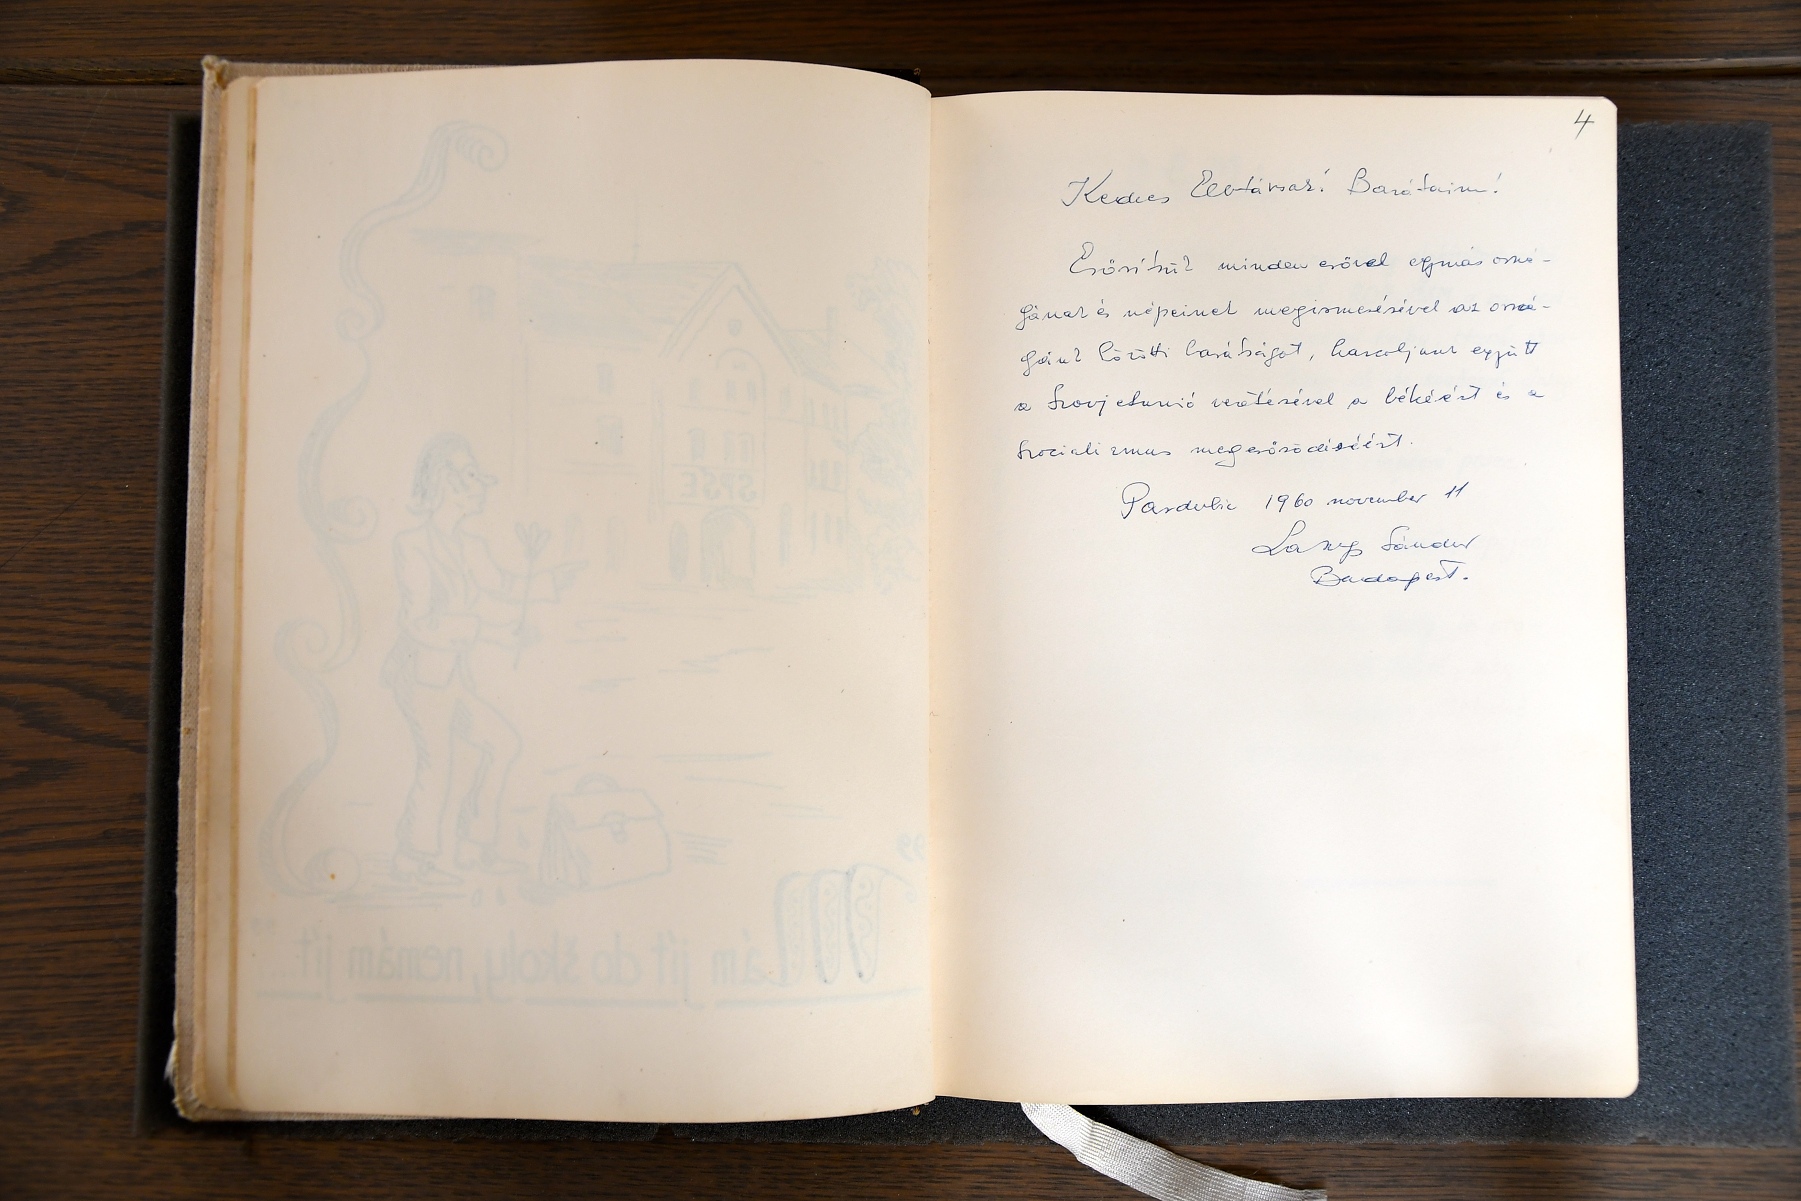 4
Kedves Elvtársak! Barátaim!
Erősítsük minden erővel egymás orszá-
gának és népeinek megismerésével az orszá-
gaink közötti barátságot, harcoljunk együtt
a Szovjetunió vezetésével a békéért és a
szocializmus megerősödéséért.
Pardubic 1960 november 11
Sándor
Budapest.
SPSE
"Mám jít do školy, nemám jít..."